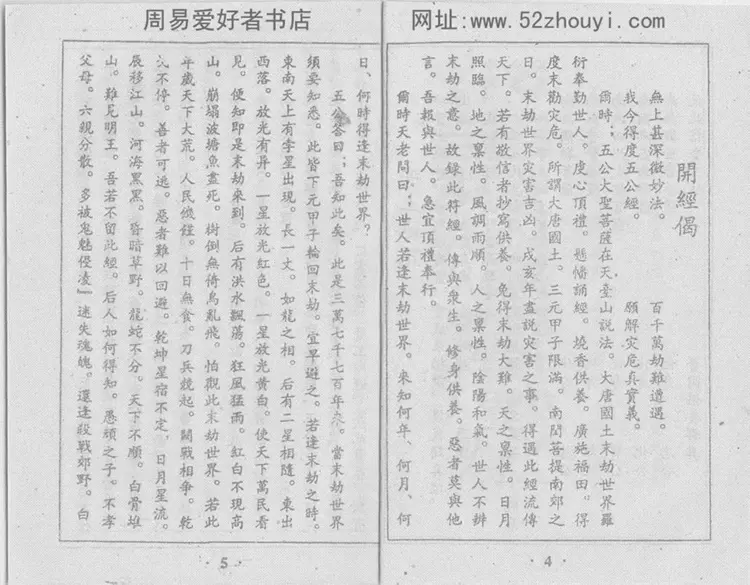 周易爱好者书店
网址:www.52zhouyi.com
開經偈
無上甚深微妙法。 百千萬劫難遭遇。
我今得度五公經。 願解災危真實義。
爾時;五公大聖菩薩在天臺山說法。大唐國土末劫世界羅
衍奉勤世人。虔心頂禮。懸幡誦經。燒香供養。廣施福田。得
度末勸災危。所謂大唐國土。三元甲子限滿。南閆菩提南郊之
日。末劫世界災害吉凶。戌亥年盡說災害之事。得遇此經流傳
天下。若有敬信者抄寫供養。免得末劫大難。天之稟性。日月
照臨。地之稟性。風調雨順。人之稟性。陰陽和氣。世人不辨
末劫之意。故錄此符經。傳與衆生。修身供養。惡者莫與他
言。吾報與世人。急宜頂禮奉行。
爾時天老問曰;世人若逢末劫世界。未知何年、何月、何
·4·
日、何時得逢末劫世界?
五公答曰;吾知此矣。此是三萬七千七百年。當末劫世界
須要知悉。此皆下元甲子輪回末劫。宜早避之。若逢末劫之時。
東南天上有孛星出現。長一丈。如龍之相。后有二星相隨。東出
西落。放光有異。一星放光紅色。一星放光黃白。使天下萬民看
見。便知即是末劫來到。后有洪水飄蕩。狂風猛雨。紅白不現高
山。崩塌波塘魚盡死。樹倒無倚鳥亂飛。怕觀此末劫世界。若此
年歲天下大荒。人民饑饉。十日無食。刀兵競起。鬪戰相爭。乾
不停。善者可逃。惡者難以回避。乾坤星宿不定。日月星流。
辰移江山。河海黑黑。昏暗草野。龍蛇不分。天下不順。白骨堆
山。難見明王。吾若不留此經。后人如何得知。愚頑之子。不孝
父母。六親分散。多被鬼魅侵凌』迷失魂魄。還逢殺戰郊野。白
·5·